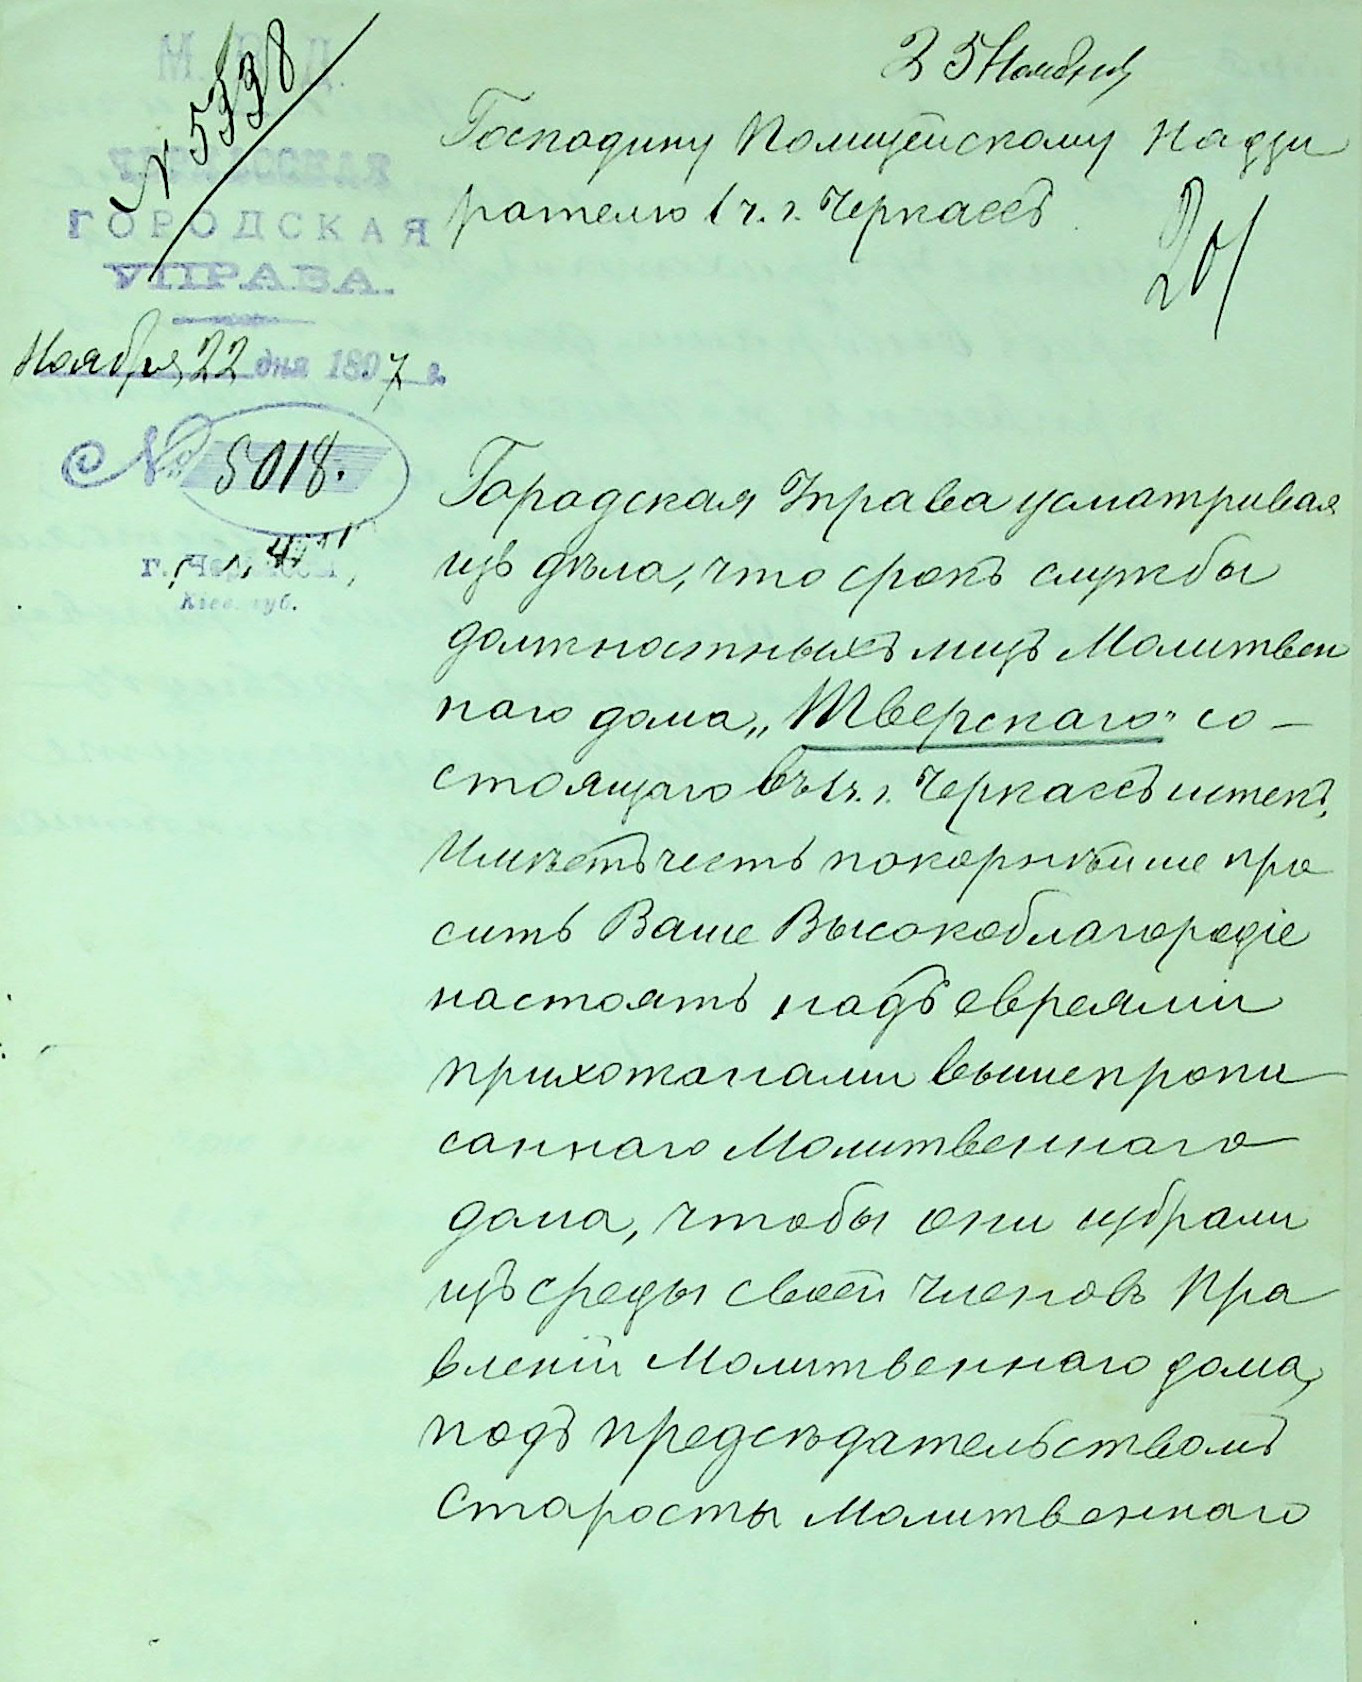 М. В. Д.
№ 5398
ЧЕРКАССКАЯ
ГОРОДСКАЯ
УПРАВА.
Ноября 22 дня 1897 г.
№ 5018.
г. Черкассы,
Кіев. губ.
25 Ноября
Господину Полицейскому Надзи
рателю 1 ч. г. Черкассъ
Городская Управа усматривая
изъ дѣла, что срокъ службы
должностныхъ лицъ Молитвен
наго дома „Тверскаго" со–
стоящаго въ 1 ч. г. Черкассъ истекъ,
Имѣетъ честь покорнѣйше про
сить Ваше Высокоблагородіе
настоять надъ евреями
прихожанами вышепропи
саннаго Молитвеннаго
дома, чтобы они избрали
изъ среды своей членовъ Пра
вленій Молитвеннаго дома,
подъ предсѣдательствомъ
Старосты Молитвеннаго